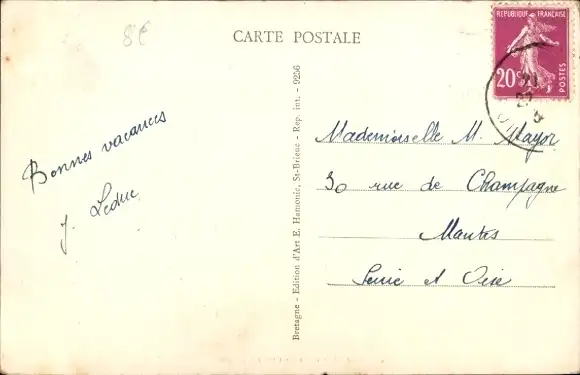 8€
CARTE POSTALE
REPUBLIQUE FRANÇAISE
20c
POSTES
21
Bonnes vacances
J. Leduc
Bretagne - Edition d'Art E. Hamonic, St-Brieuc - Rep. int. - 9256
Mademoiselle M. Mayor
30 rue de Champagne
Mantes
Seine et Oise